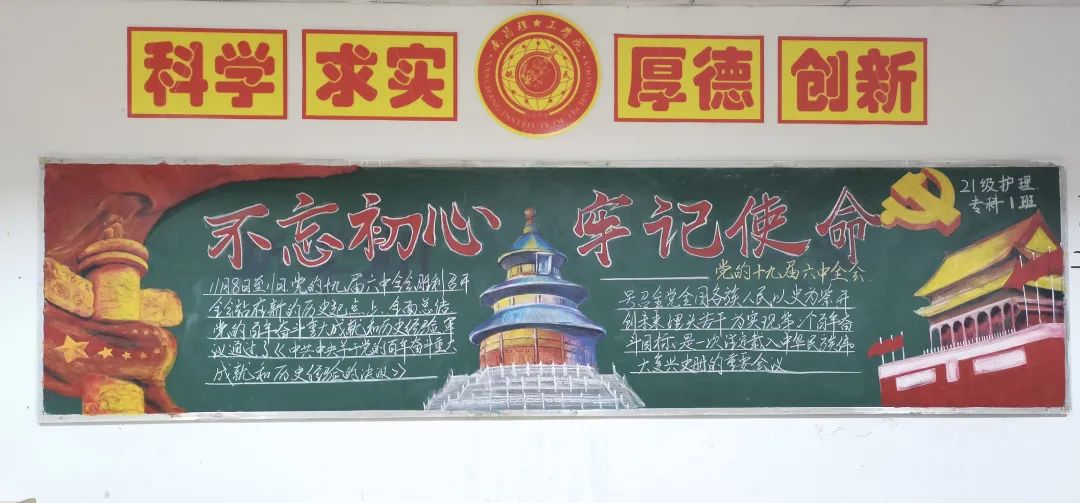 科学 求实 厚德 创新
南昌理工学院
航天
NANCHANG INSTITUTE OF TECHNOLOGY
不忘初心 牢记使命
21级护理
专科1班
——党的十九届六中全会
11月8日至11日党的十九届六中全会胜利召开
全会站在新的历史起点上,全面总结
党的百年奋斗重大成就和历史经验,审
议通过了《中共中央关于党的百年奋斗重大
成就和历史经验的决议》
号召全党全国各族人民以史为鉴开
创未来埋头苦干为实现第二个百年奋
斗目标,是一次载入中华民族伟
大复兴史册的重要会议